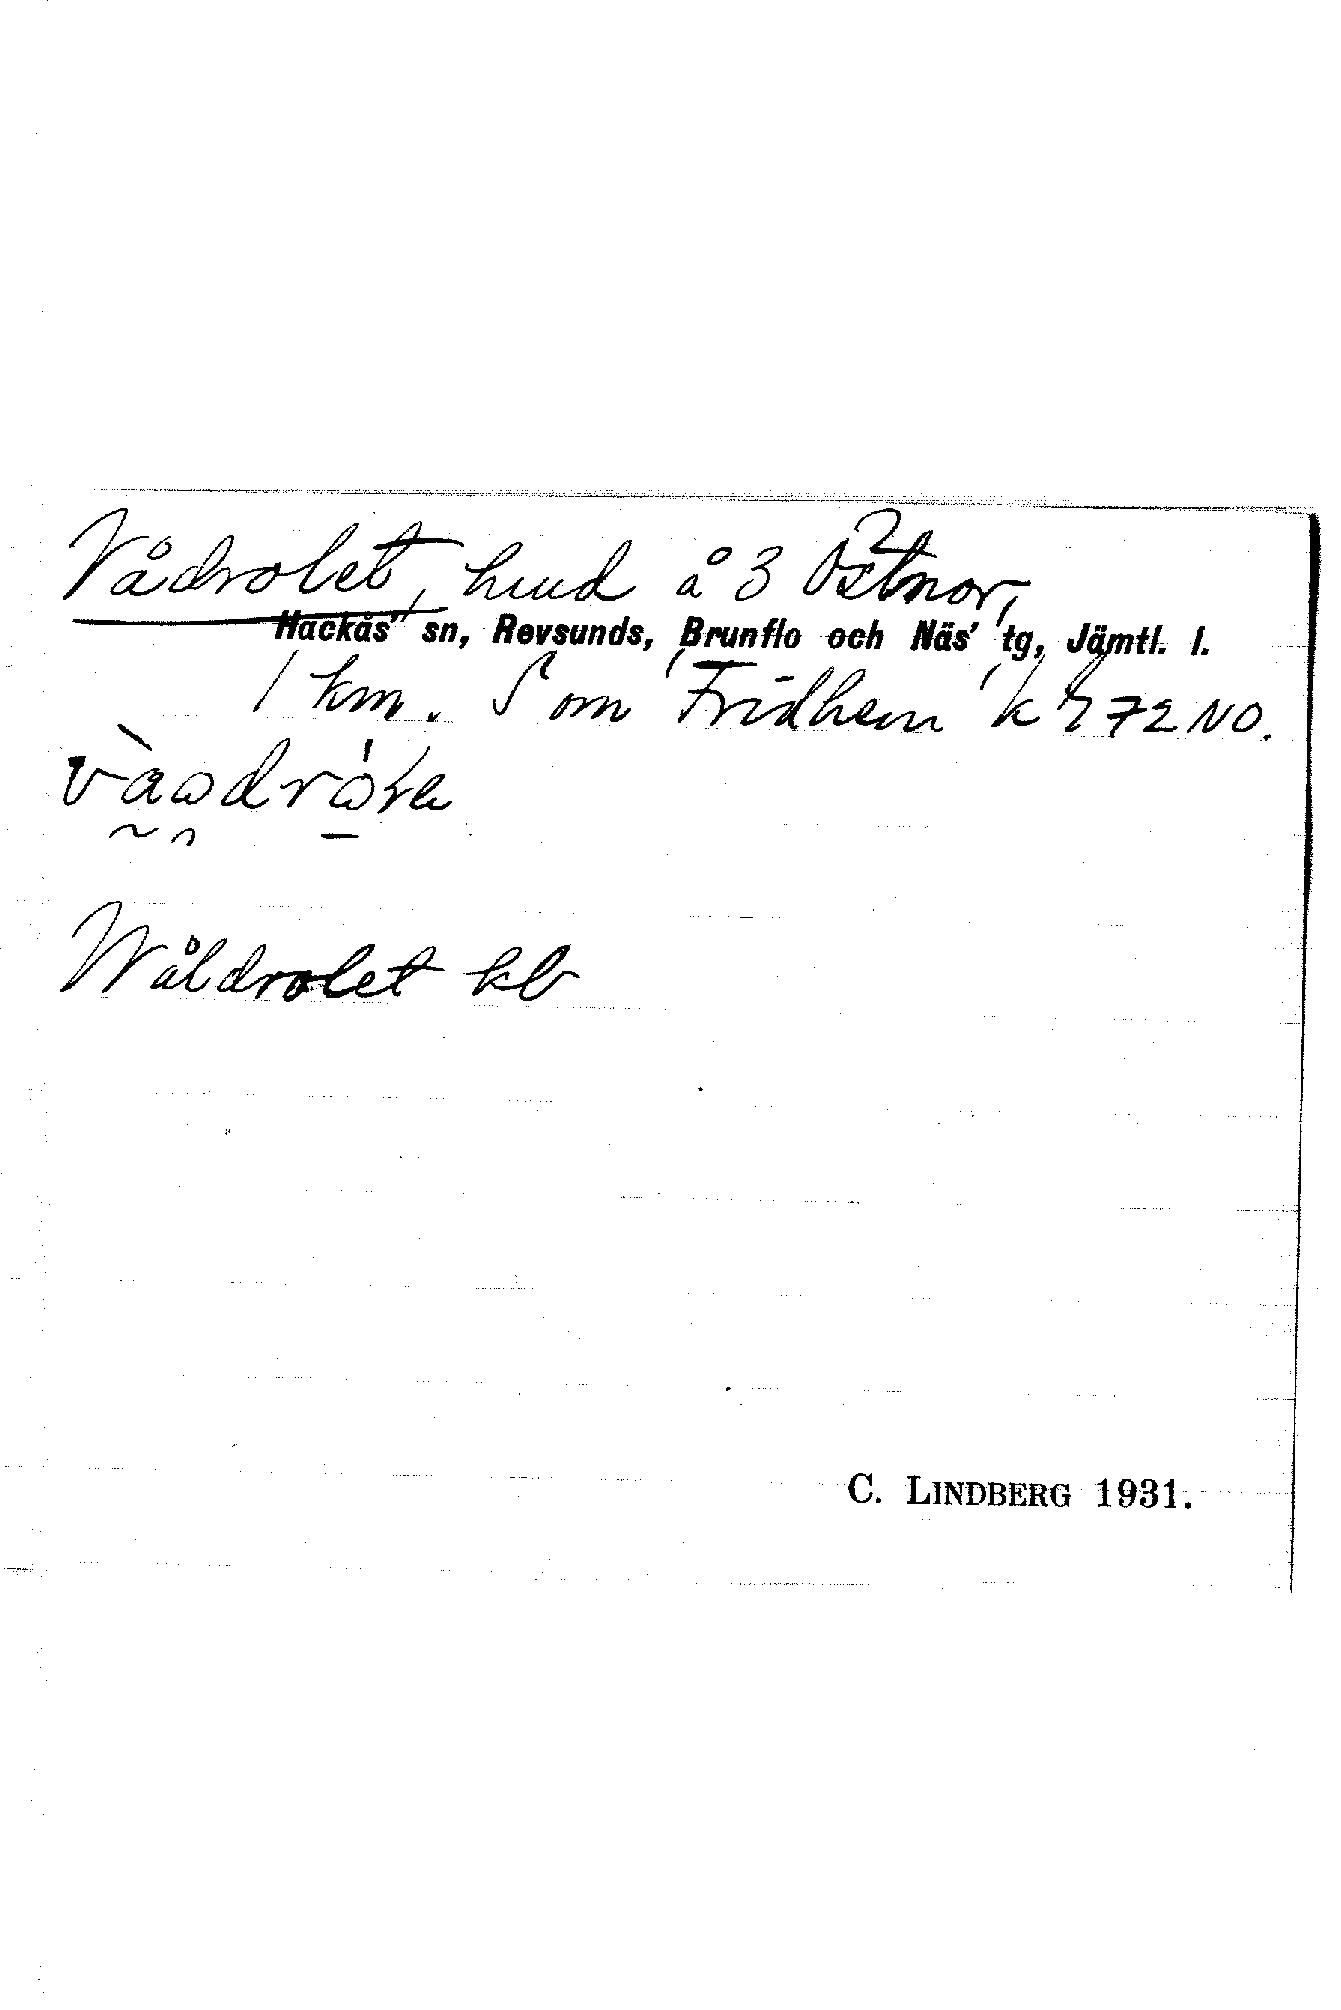 Vådrolet, hmd å 3 Östnor,
Hackås sn, Revsunds, Brunflo och Näs' tg, Jämtl. l.
1 km. S om Fridhem k 472 NO.
Wåldrolet kb
C. LINDBERG 1931.